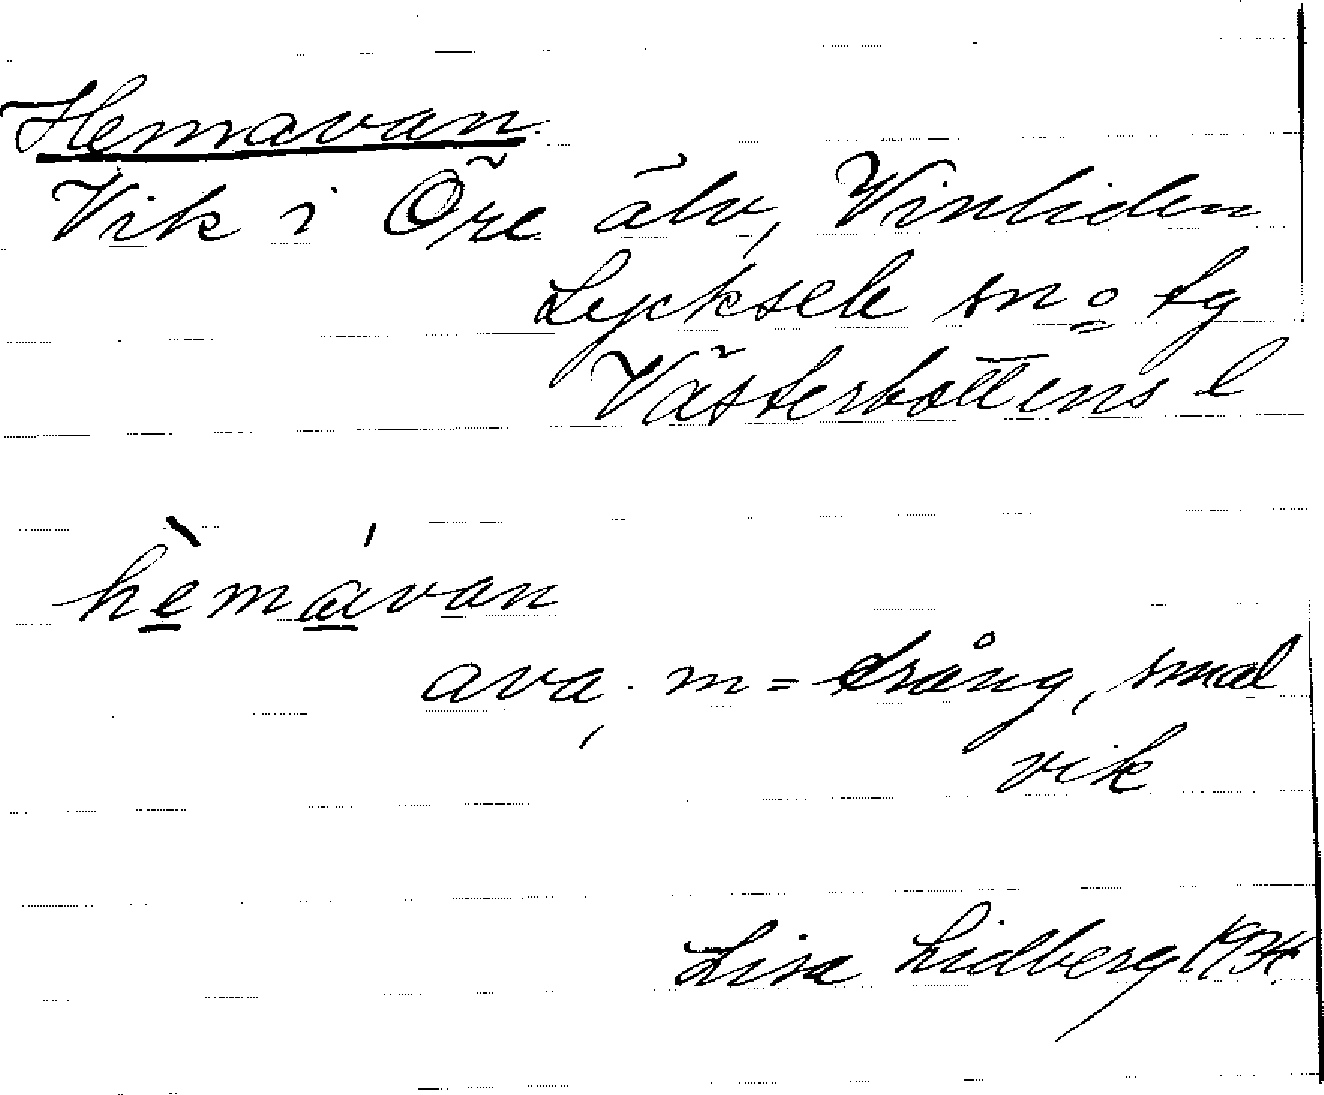 Hemavan.
Vik i Öre älv, Vinliden
Lycksele sn o lg
Västerbottens l
hèmávan
ava, m = trång, smal
vik
Lisa Lidberg 1934